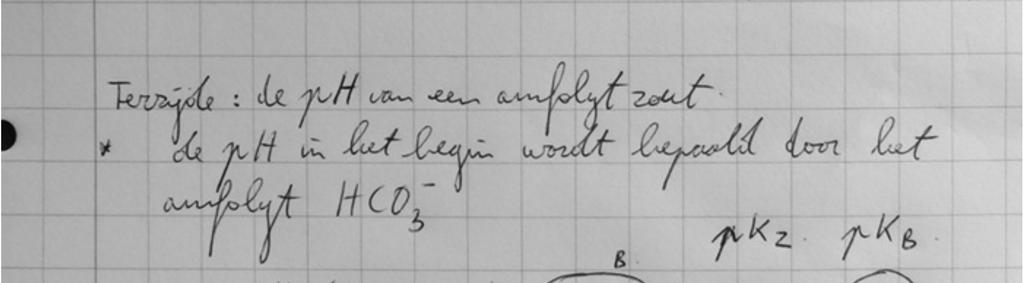 Terzijde : de pH van een amfolyt zout.
* de pH in het begin wordt bepaald door het
amfolyt HCO₃⁻
pKz. pKB.
B.